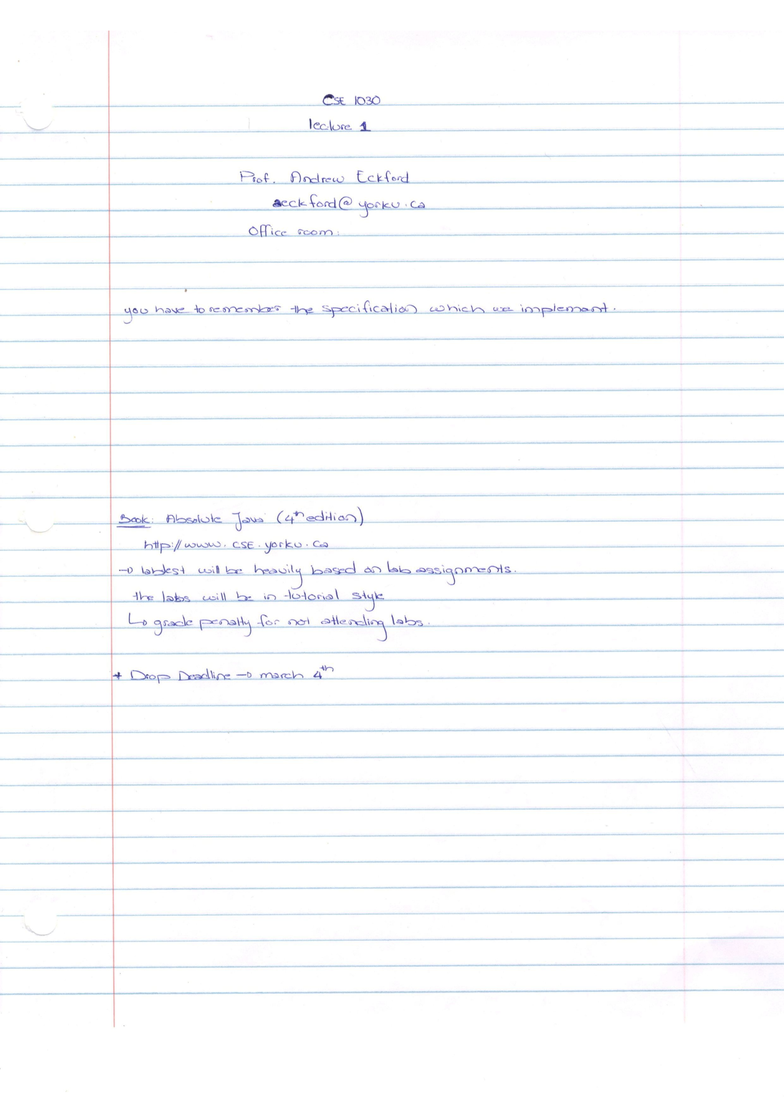 CSE 1030
lecture 1
Prof. Andrew Eckford
aeckford@yorku.ca
Office room:
you have to remember the specification which we implement.
Book: Absolute Java (4th edition)
http://www.cse.yorku.ca
→ labtest will be heavily based on lab assignments.
the labs will be in tutorial style
↳ grade penalty for not attending labs.
* Drop Deadline → march 4th